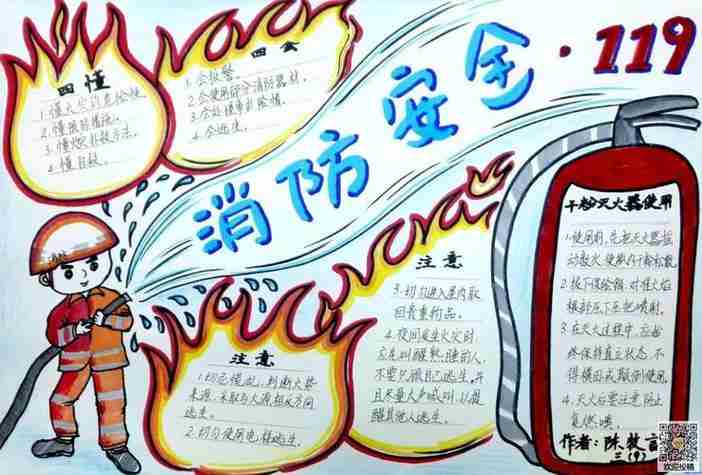 消防安全·119
四懂
1.懂火灾的危险性.
2.懂预防措施.
3.懂火灾扑救方法.
4.懂自救.
四会
1.会报警.
2.会使用部分消防器材.
3.会处理事故险情.
4.会逃生.
注意
1.切忌慌乱,判断火势
来源,采取与火源相反方向
逃生.
2.切勿使用电梯逃生.
注意
3.切勿进入屋内取
回贵重物品.
4.夜间发生火灾时,
应先叫醒熟睡的人,
不要只顾自己逃生,并
且尽量大声喊叫,以提
醒其他人逃生.
干粉灭火器使用
1.使用前,先把灭火器摇
动数次,使瓶内干粉松散.
2.拔下保险销,对准火焰
根部压下压把喷射.
3.在灭火过程中,应始
终保持直立状态,不
得横卧或颠倒使用.
4.灭火后要注意防止
复燃.
作者:陈
三(9)
欢迎投稿